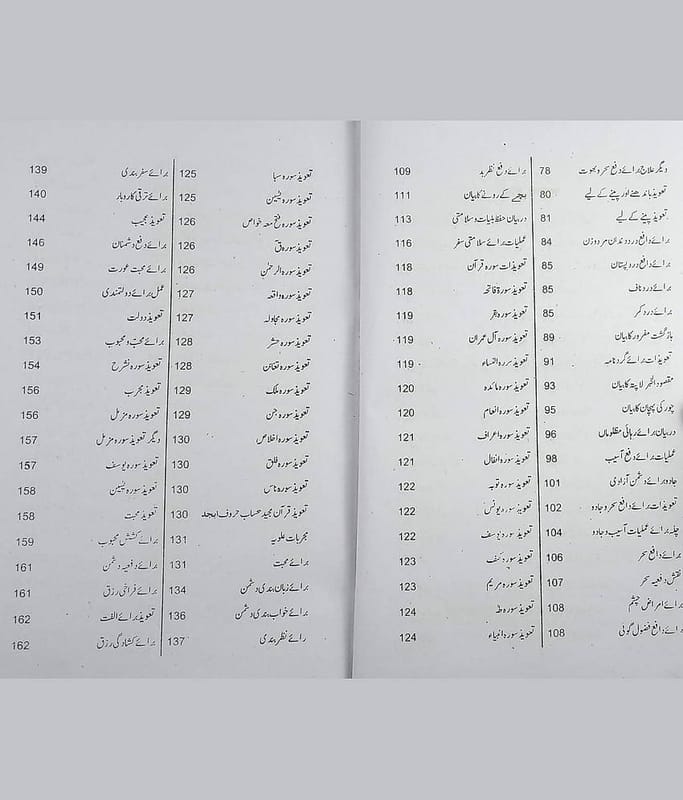 دیگر علاج برائے دفع سحر و بھوت 78
تعویذ باندھنے اور پینے کے لیے 80
تعویذ پینے کے لیے 81
برائے دافع درد دندان مرد و زن 84
برائے دافع درد پستان 85
برائے درد ناف 85
برائے درد کمر 85
بازگشت مفرور کا بیان 89
تعویذات برائے گرد نامہ 91
مقصود الخبر لاپتہ کا بیان 93
چور کی پہچان کا بیان 95
در بیان برائے رہائی مظلوماں 96
عملیات برائے دفع آسیب 98
جادو برائے دشمن آزادی 101
تعویذات برائے دافع سحر و جادو 102
چلہ برائے عملیات آسیب و جادو 104
برائے دافع سحر 106
نقش دفعیہ سحر 107
برائے امراض چشم 108
برائے دافع فضول گوئی 108
برائے دفع نظر بد 109
بچے کے رونے کا بیان 111
در بیان حفظ بلیات و سلامتی 113
عملیات برائے سلامتی سفر 116
تعویذات سورہ قرآن 118
تعویذ سورہ فاتحہ 118
تعویذ سورہ بقر 119
تعویذ سورہ آل عمران 119
تعویذ سررہ النساء 119
تعویذ سورہ مائدہ 120
تعویذ سورہ انعام 120
تعویذ سورہ اعراف 121
تعویذ سورہ انفال 121
تعویذ سورہ توبہ 122
تعویذ سورہ یونس 122
تعویذ سورہ یوسف 122
تعویذ سورہ کہف 123
تعویذ سورہ مریم 123
تعویذ سورہ طہ 124
تعویذ سورہ انبیاء 124
تعویذ سورہ سبا 125
تعویذ سورہ یٰسین 125
تعویذ سورہ فتح معہ خواص 126
تعویذ سورہ ق 126
تعویذ سورہ الرحمٰن 126
تعویذ سورہ واقعہ 127
تعویذ سورہ مجادلہ 127
تعویذ سورہ حشر 128
تعویذ سورہ تغابن 128
تعویذ سورہ ملک 129
تعویذ سورہ جن 129
تعویذ سورہ اخلاص 130
تعویذ سورہ فلق 130
تعویذ سورہ ناس 130
تعویذ قرآن مجید حساب حروف ابجد 130
مجربات علویہ 131
برائے محبت 131
برائے زبان بندی دشمن 134
برائے خواب بندی دشمن 136
رائے نظر بندی 137
برائے سفر بندی 139
برائے ترقی کاروبار 140
تعویذ عجیب 144
برائے دفع دشمنان 146
برائے محبت عورت 149
عمل برائے دولتمندی 150
تعویذ دولت 151
برائے محبّ و محبوب 153
تعویذ سورہ نشرح 154
تعویذ مجرب 156
تعویذ سورہ مزمل 156
دیگر تعویذ سورہ مزمل 157
تعویذ سورہ یوسف 157
تعویذ سورہ یٰسین 158
تعویذ محبت 158
برائے کشش محبوب 159
برائے دفعیہ دشمن 161
برائے فراخی رزق 161
تعویذ برائے الفت 162
برائے کشادگی رزق 162